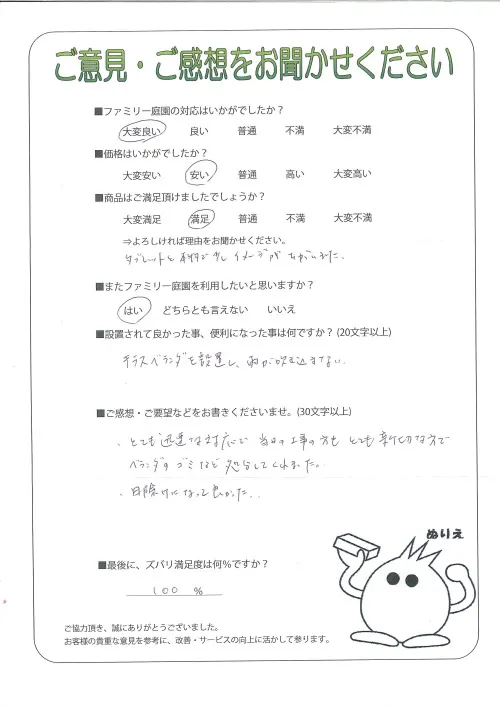 ご意見・ご感想をお聞かせください
■ファミリー庭園の対応はいかがでしたか？
大変良い 良い 普通 不満 大変不満
■価格はいかがでしたか？
大変安い 安い 普通 高い 大変高い
■商品はご満足頂けましたでしょうか？
大変満足 満足 普通 不満 大変不満
⇒よろしければ理由をお聞かせください。
タブレットと 少し イメージが ちがいました．
■またファミリー庭園を利用したいと思いますか？
はい どちらとも言えない いいえ
■設置されて良かった事、便利になった事は何ですか？(20文字以上)
テラスベランダを設置し、雨が吹き込まない．
■ご感想・ご要望などをお書きくださいませ。(30文字以上)
・とても迅速な対応で 当日の工事の方も とても親切な方で
ベランダのゴミなど 処分してくれました。
・日除けになって良かった．
ぬりえ
■最後に、ズバリ満足度は何％ですか？
100 %
ご協力頂き、誠にありがとうございました。
お客様の貴重な意見を参考に、改善・サービスの向上に活かして参ります。